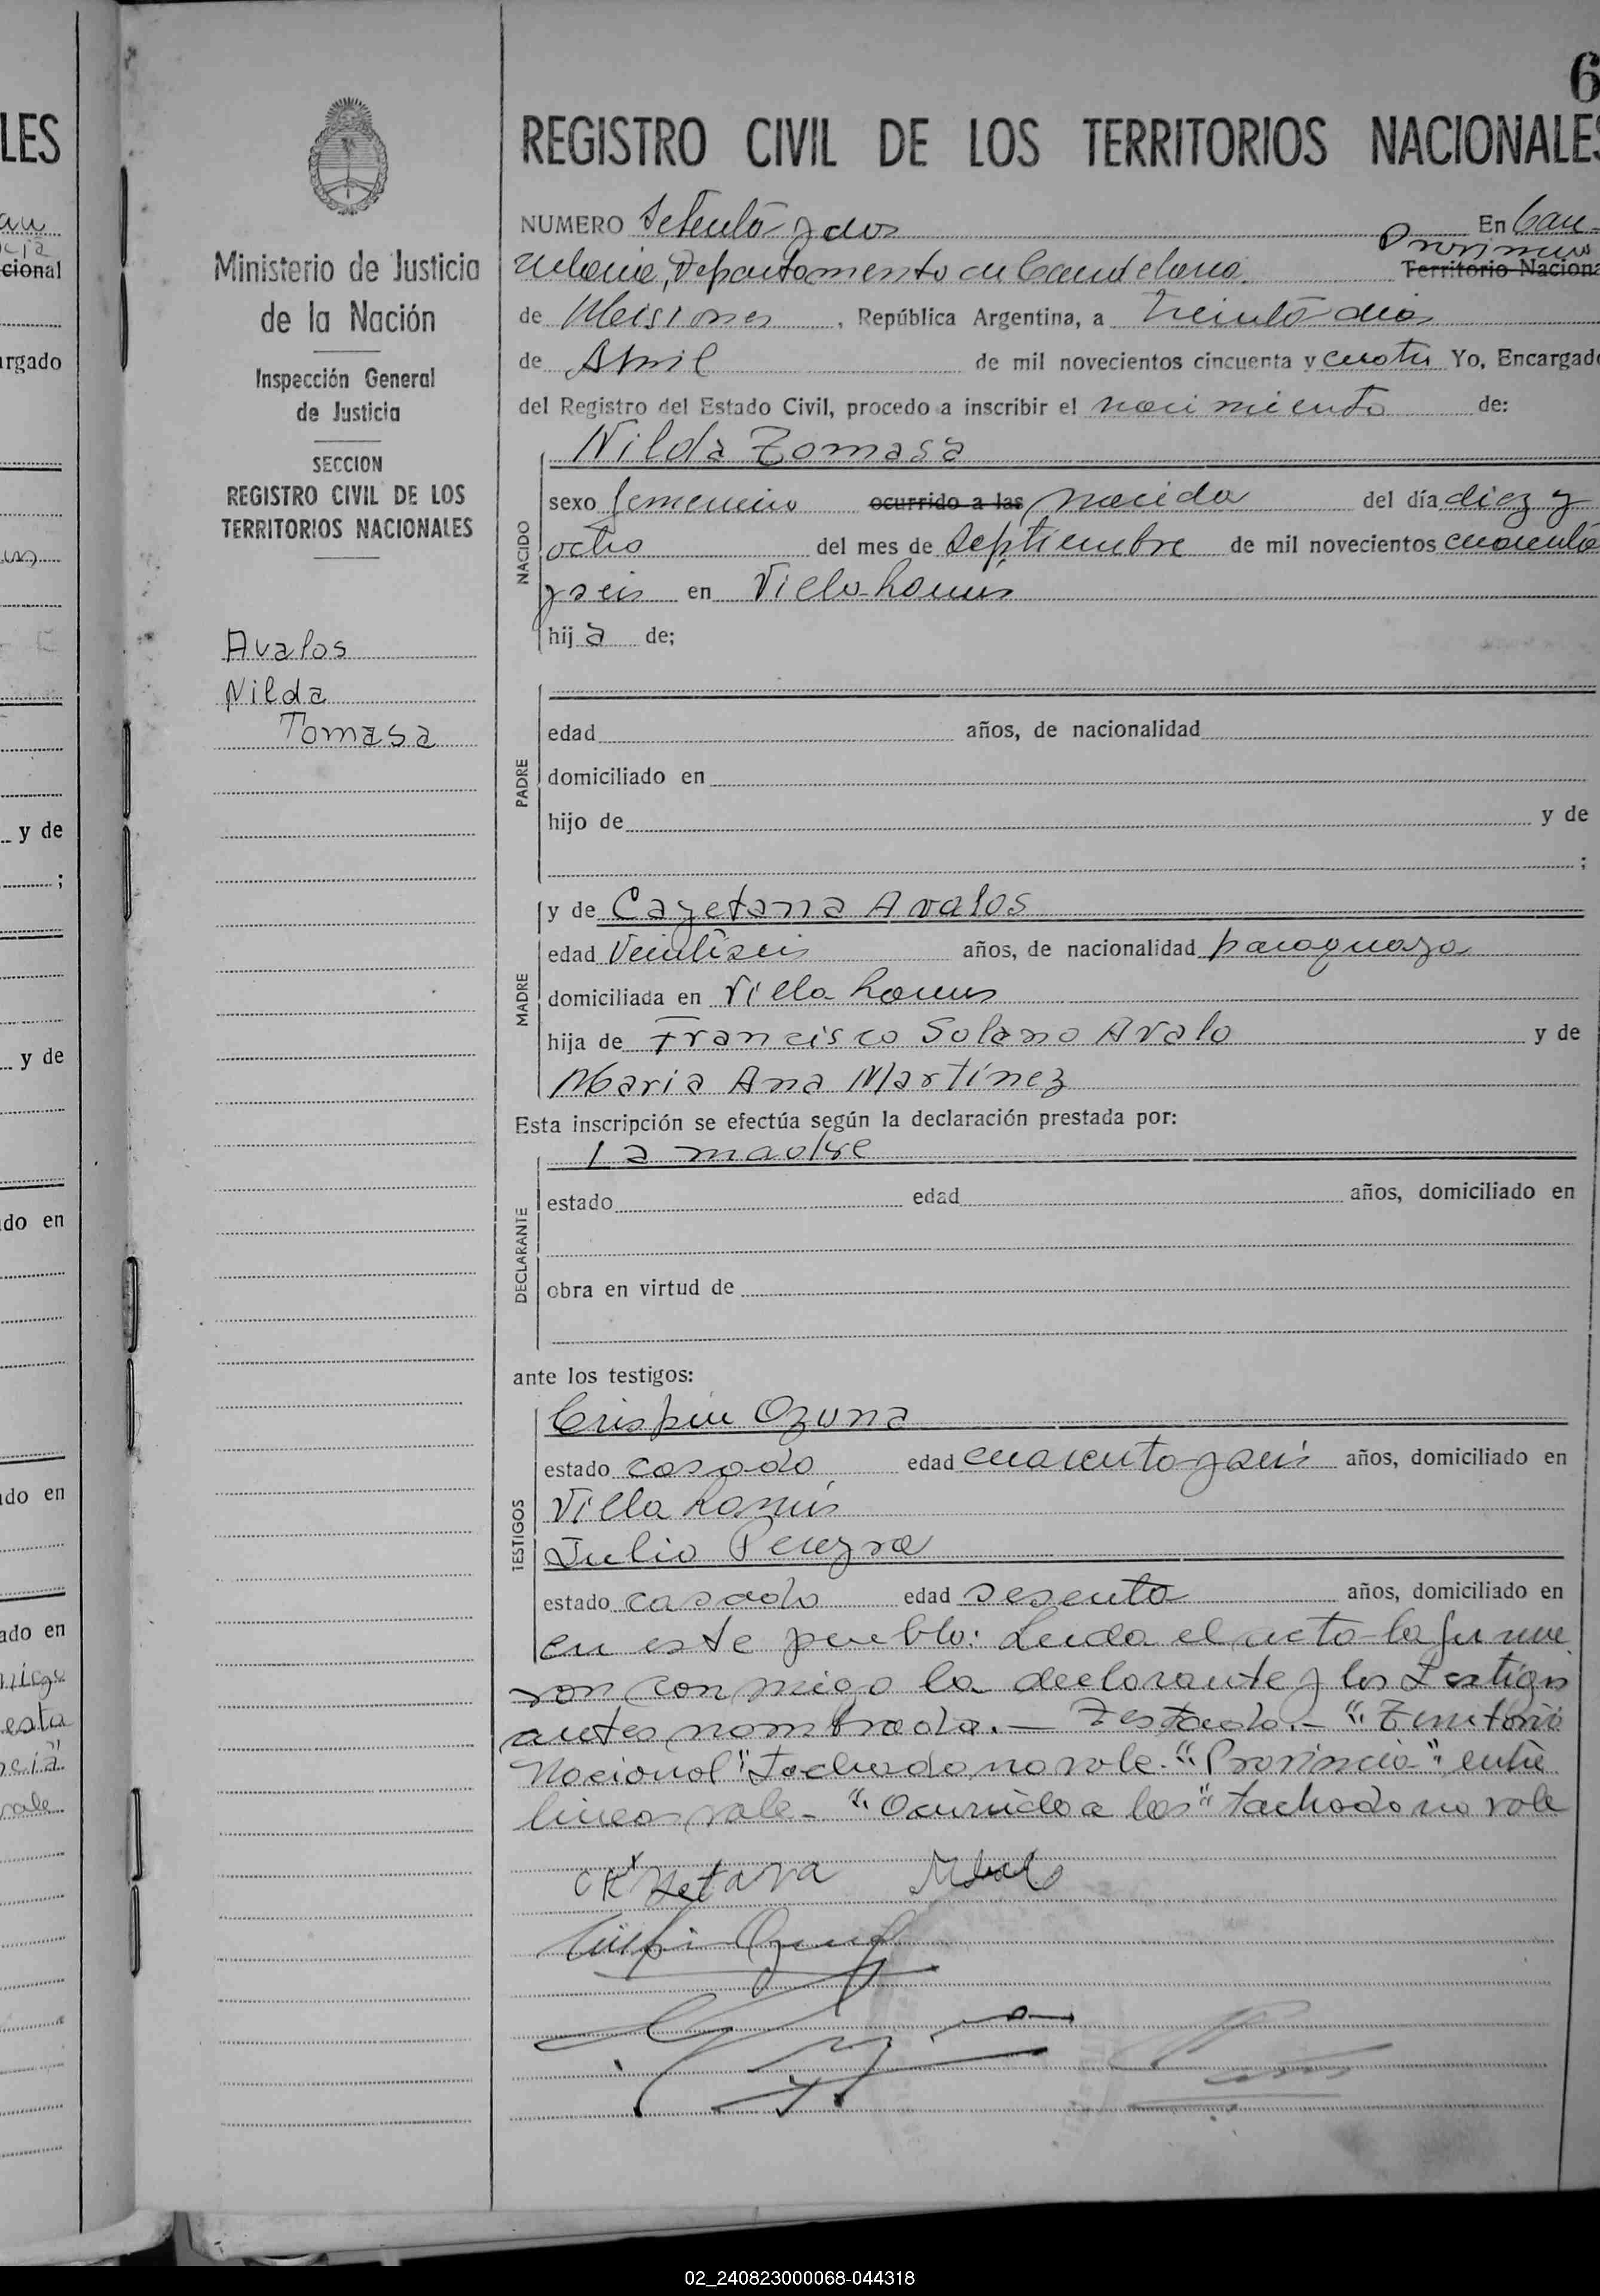 6
LES
REGISTRO CIVIL DE LOS TERRITORIOS NACIONALES
NUMERO Setenta y dos En Can-
Provincia
delaria, Departamento de Candelaria. Territorio Naciona
de Misiones, República Argentina, a treinta dias
de Abril de mil novecientos cincuenta y cuatro Yo, Encargado
del Registro del Estado Civil, procedo a inscribir el nacimiento de:
Nilda Tomasa
NACIDO
sexo femenino ocurrido a las nacida del día diez y
ocho del mes de Septiembre de mil novecientos cuarenta
y seis en Villa Lanús
hija de;
PADRE
edad años, de nacionalidad
domiciliado en
hijo de y de
;
MADRE
y de Cayetana Avalos
edad Veintiseis años, de nacionalidad paraguaya
domiciliada en Villa Lanus
hija de Francisco Solano Avalo y de
Maria Ana Martínez
Esta inscripción se efectúa según la declaración prestada por:
la madre
DECLARANTE
estado edad años, domiciliado en
obra en virtud de
ante los testigos:
TESTIGOS
Crispin Ozuna
estado casado edad cuarenta y seis años, domiciliado en
Villa Lanús
Julio Pereyra
estado casado edad sesenta años, domiciliado en
en este pueblo: Leida el acta la firma
ron conmigo la declarante y los testigos
antes nombrados.— Testado.- "Territorio
Nacional" tachado no vale. "Provincia" entre
lineas vale- "Ocurrido a las" tachado no vale
Ministerio de Justicia
de la Nación
Inspección General
de Justicia
SECCION
REGISTRO CIVIL DE LOS
TERRITORIOS NACIONALES
Avalos
Nilda
Tomasa
cional
rgado
y de
;
y de
do en
do en
ado en
esta
vale
02_240823000068-044318